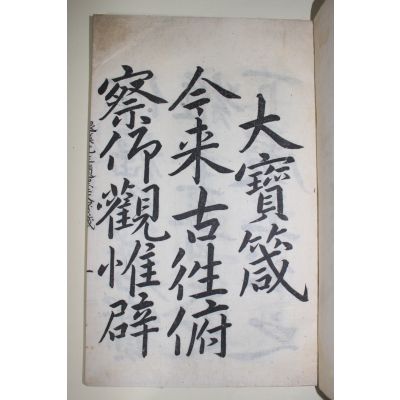 大寶箴
今来古往俯
察仰觀惟辟